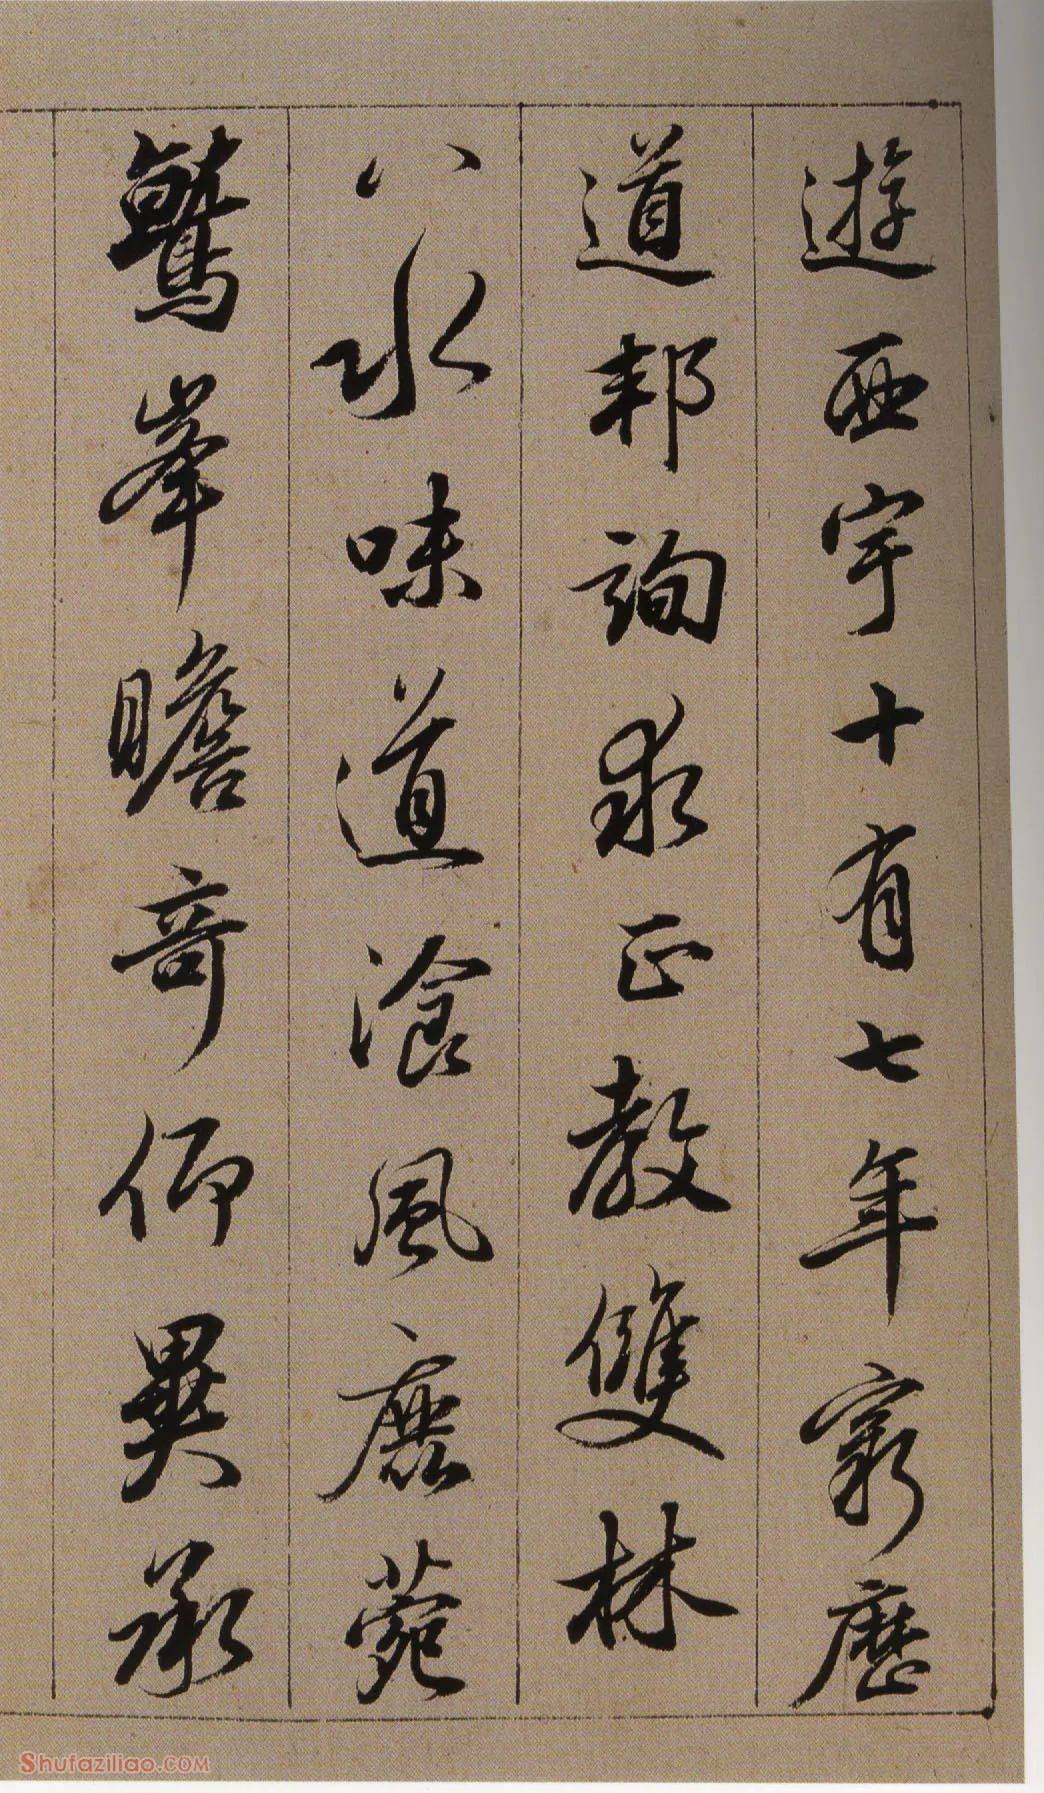 遊西宇十有七年窮歷
道邦詢求正教雙林
八水味道飡風鹿菀
鷲峯瞻奇仰異承
Shufaziliao.COM